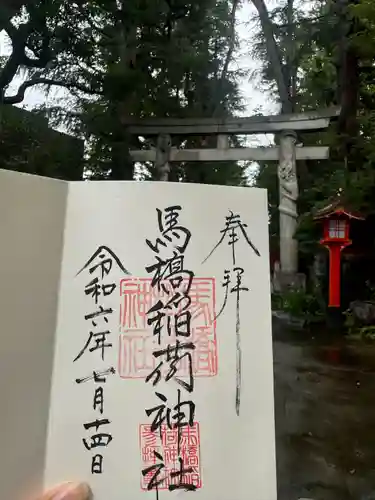 奉拝
馬橋稲荷神社
令和六年七月十四日